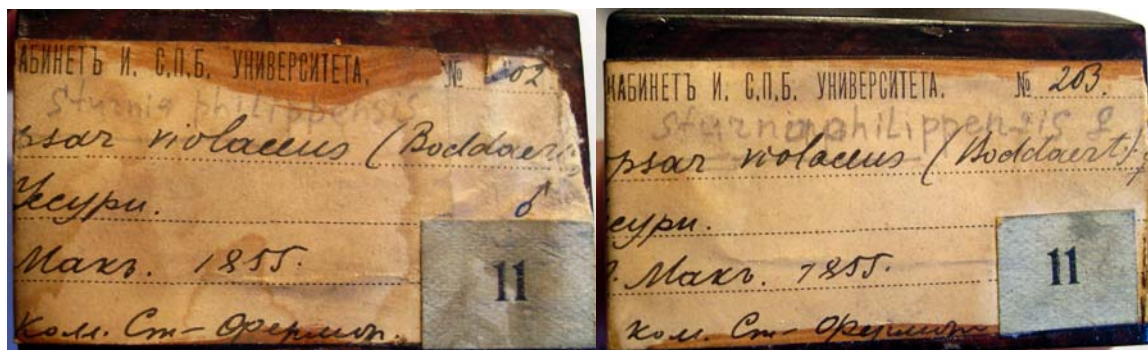 АБИНЕТЪ И. С.П.Б. УНИВЕРСИТЕТА. № 02
Sturnia philippensis
psar violaceus (Boddaer
Усури. ♂
Макъ. 1855.
11
Кол. Ст-Офермон.
КАБИНЕТЪ И. С.П.Б. УНИВЕРСИТЕТА. № 203.
Sturnia philippensis ♀
opsar violaceus (Boddaert)
сури.
Макъ. 1855.
11
кол. Ст-Офермон